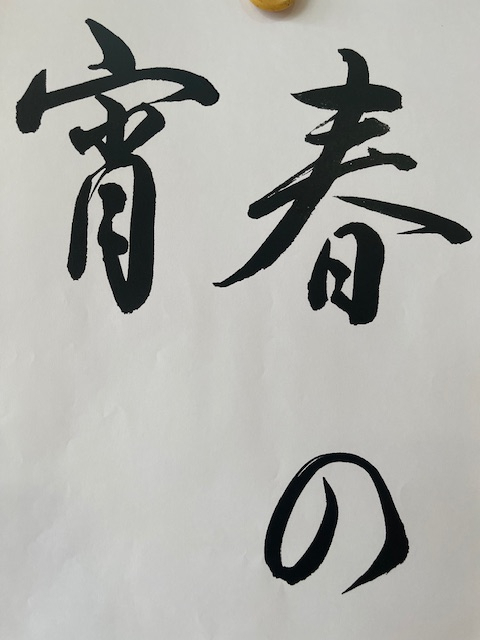 春の
宵